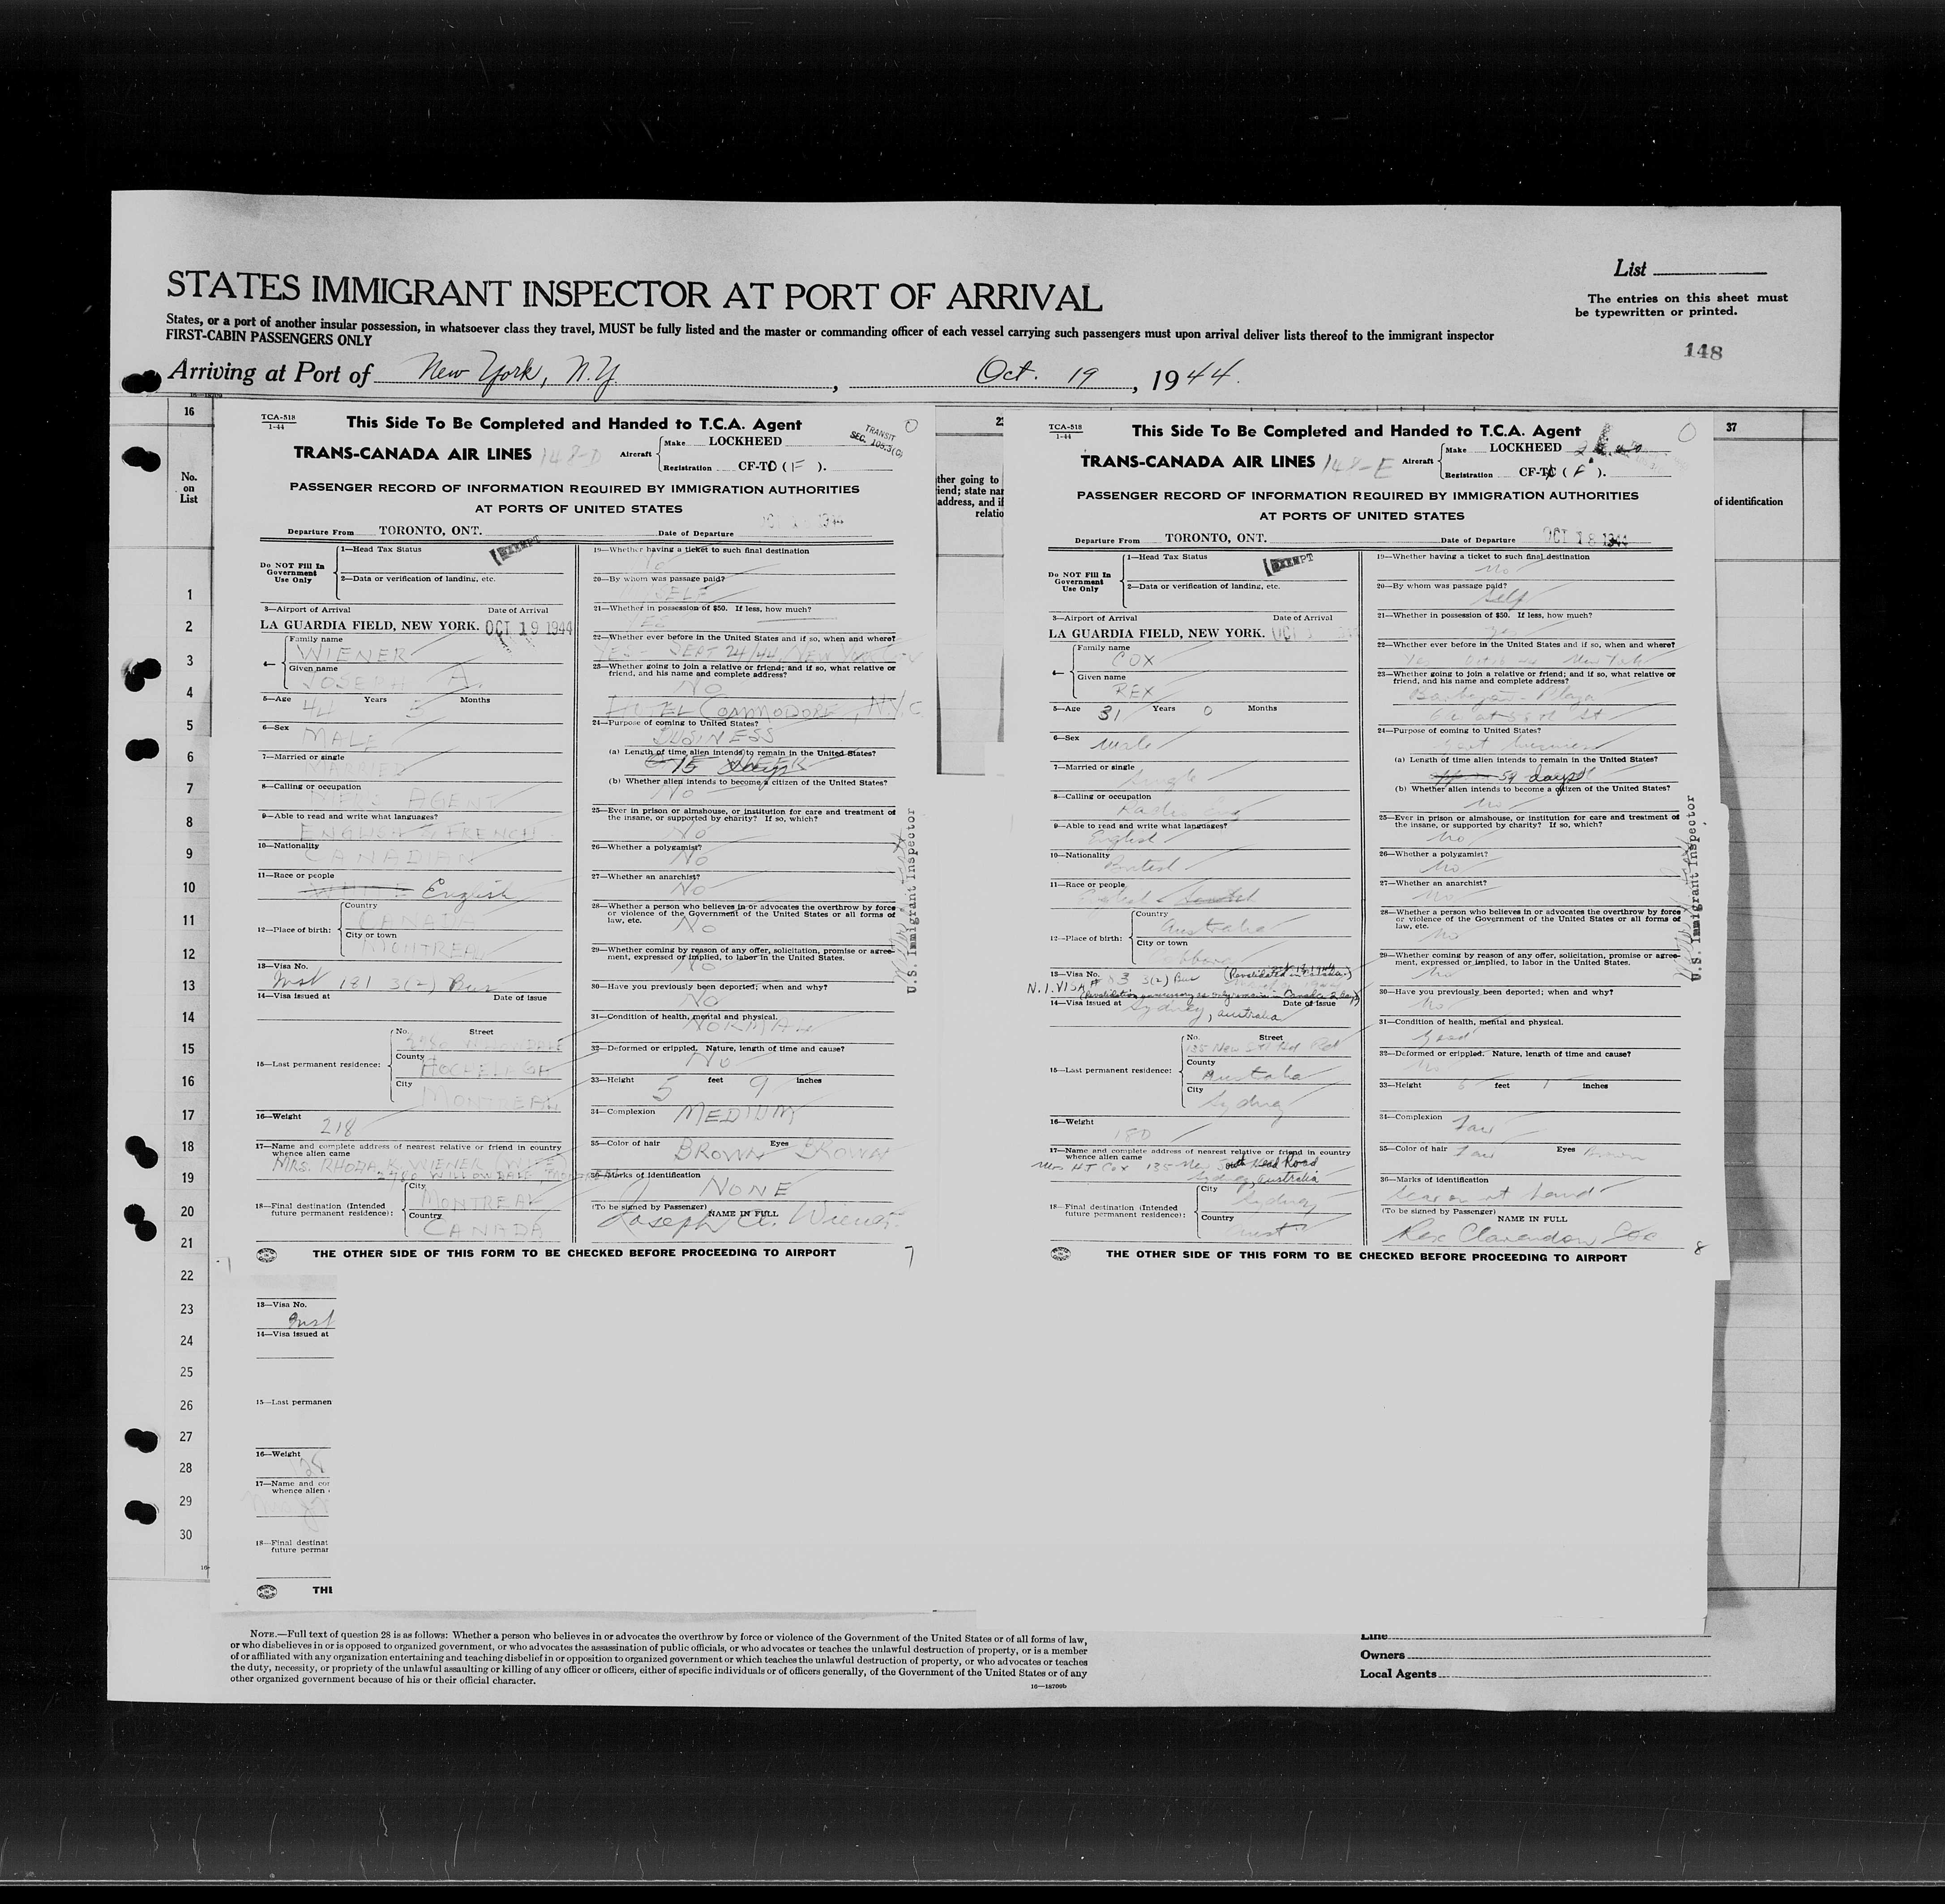 List
STATES IMMIGRANT INSPECTOR AT PORT OF ARRIVAL
The entries on this sheet must
be typewritten or printed.
States, or a port of another insular possession, in whatsoever class they travel, MUST be fully listed and the master or commanding officer of each vessel carrying such passengers must upon arrival deliver lists thereof to the immigrant inspector
FIRST-CABIN PASSENGERS ONLY
148
Arriving at Port of New York, N.Y., Oct. 19, 1944.
16
No.
on
List
1
2
3
4
5
6
7
8
9
10
11
12
13
14
15
16
17
18
19
20
21
22
23
24
25
26
27
28
29
30
TCA-518
1-44
This Side To Be Completed and Handed to T.C.A. Agent
TRANSIT
SEC. 105.3(C)
TRANS-CANADA AIR LINES 148-D
Aircraft
Make LOCKHEED
Registration CF-TC (F).
PASSENGER RECORD OF INFORMATION REQUIRED BY IMMIGRATION AUTHORITIES
AT PORTS OF UNITED STATES
Departure From TORONTO, ONT. Date of Departure
Do NOT Fill In
Government
Use Only
1—Head Tax Status EXEMPT
2—Data or verification of landing, etc.
3—Airport of Arrival Date of Arrival
LA GUARDIA FIELD, NEW YORK. OCT 19 1944
Family name
WIENER
Given name
JOSEPH A.
5—Age 44 Years 5 Months
6—Sex
MALE
7—Married or single
MARRIED
8—Calling or occupation
AGENT
9—Able to read and write what languages?
ENGLISH & FRENCH
10—Nationality
CANADIAN
11—Race or people
English
12—Place of birth:
Country
CANADA
City or town
MONTREAL
13—Visa No.
Inst 181 3(2) Bus
14—Visa issued at Date of issue
15—Last permanent residence:
No. Street
2980 WILLOWDALE
County
HOCHELAGA
City
MONTREAL
16—Weight
218
17—Name and complete address of nearest relative or friend in country
whence alien came
MRS. RHODA WIENER (WIFE)
2980 WILLOWDALE,
18—Final destination (Intended
future permanent residence):
City
MONTREAL
Country
CANADA
19—Whether having a ticket to such final destination
20—By whom was passage paid?
SELF
21—Whether in possession of $50. If less, how much?
YES
22—Whether ever before in the United States and if so, when and where?
YES - SEPT 24/44 NEW YORK
23—Whether going to join a relative or friend; and if so, what relative or
friend, and his name and complete address?
NO
HOTEL COMMODORE, N.Y.C
24—Purpose of coming to United States?
BUSINESS
(a) Length of time alien intends to remain in the United States?
15 days
(b) Whether alien intends to become a citizen of the United States?
No
25—Ever in prison or almshouse, or institution for care and treatment of
the insane, or supported by charity? If so, which?
No
26—Whether a polygamist?
No
27—Whether an anarchist?
No
28—Whether a person who believes in or advocates the overthrow by force
or violence of the Government of the United States or all forms of
law, etc.
No
29—Whether coming by reason of any offer, solicitation, promise or agree-
ment, expressed or implied, to labor in the United States.
No
30—Have you previously been deported; when and why?
No
31—Condition of health, mental and physical.
NORMAL
32—Deformed or crippled. Nature, length of time and cause?
No
33—Height 5 feet 9 inches
34—Complexion MEDIUM
35—Color of hair BROWN Eyes BROWN
36—Marks of identification
NONE
(To be signed by Passenger) NAME IN FULL
Joseph A. Wiener
U.S. Immigrant Inspector
THE OTHER SIDE OF THIS FORM TO BE CHECKED BEFORE PROCEEDING TO AIRPORT
7
ther going to
iend; state nam
address, and if
relatio
TCA-518
1-44
This Side To Be Completed and Handed to T.C.A. Agent
TRANS-CANADA AIR LINES 148-E
Aircraft
Make LOCKHEED
Registration CF-TC (F).
PASSENGER RECORD OF INFORMATION REQUIRED BY IMMIGRATION AUTHORITIES
AT PORTS OF UNITED STATES
Departure From TORONTO, ONT. Date of Departure OCT 18 1944
Do NOT Fill In
Government
Use Only
1—Head Tax Status EXEMPT
2—Data or verification of landing, etc.
3—Airport of Arrival Date of Arrival
LA GUARDIA FIELD, NEW YORK.
Family name
COX
Given name
REX
5—Age 31 Years 0 Months
6—Sex
Male
7—Married or single
Single
8—Calling or occupation
Radio Eng
9—Able to read and write what languages?
English
10—Nationality
British
11—Race or people
English
12—Place of birth:
Country
Australia
City or town
13—Visa No. 3(2) Bus
N.I. VISA
14—Visa issued at Sydney, Australia Date of issue
15—Last permanent residence:
No. Street
135 New Sth Hd Rd
County
Australia
City
Sydney
16—Weight
180
17—Name and complete address of nearest relative or friend in country
whence alien came
Mrs HT Cox 135 New South Head Road
Sydney, Australia
18—Final destination (Intended
future permanent residence):
City
Sydney
Country
Aust
19—Whether having a ticket to such final destination
No
20—By whom was passage paid?
Self
21—Whether in possession of $50. If less, how much?
Yes
22—Whether ever before in the United States and if so, when and where?
New York
23—Whether going to join a relative or friend; and if so, what relative or
friend, and his name and complete address?
Barbizon - Plaza
24—Purpose of coming to United States?
Govt business
(a) Length of time alien intends to remain in the United States?
59 days
(b) Whether alien intends to become a citizen of the United States?
No
25—Ever in prison or almshouse, or institution for care and treatment of
the insane, or supported by charity? If so, which?
No
26—Whether a polygamist?
No
27—Whether an anarchist?
No
28—Whether a person who believes in or advocates the overthrow by force
or violence of the Government of the United States or all forms of
law, etc.
No
29—Whether coming by reason of any offer, solicitation, promise or agree-
ment, expressed or implied, to labor in the United States.
No
30—Have you previously been deported; when and why?
No
31—Condition of health, mental and physical.
Good
32—Deformed or crippled. Nature, length of time and cause?
No
33—Height feet 1 inches
34—Complexion Fair
35—Color of hair Fair Eyes Brown
36—Marks of identification
Scar on hand
(To be signed by Passenger) NAME IN FULL
Rex Clarendon Cox
U.S. Immigrant Inspector
THE OTHER SIDE OF THIS FORM TO BE CHECKED BEFORE PROCEEDING TO AIRPORT
8
37
of identification
13—Visa No.
Inst
14—Visa issued at
15—Last permanen
16—Weight
17—Name and cor
whence alien
18—Final destinat
future permar
THE
NOTE.—Full text of question 28 is as follows: Whether a person who believes in or advocates the overthrow by force or violence of the Government of the United States or of all forms of law,
or who disbelieves in or is opposed to organized government, or who advocates the assassination of public officials, or who advocates or teaches the unlawful destruction of property, or is a member
of or affiliated with any organization entertaining and teaching disbelief in or opposition to organized government or which teaches the unlawful destruction of property, or who advocates or teaches
the duty, necessity, or propriety of the unlawful assaulting or killing of any officer or officers, either of specific individuals or of officers generally, of the Government of the United States or of any
other organized government because of his or their official character.
16—18709b
Line
Owners
Local Agents